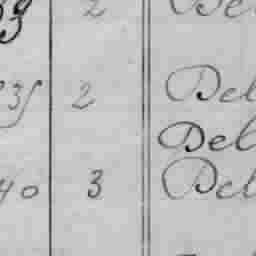 2 Del
2 Del
Del
40 3 Del